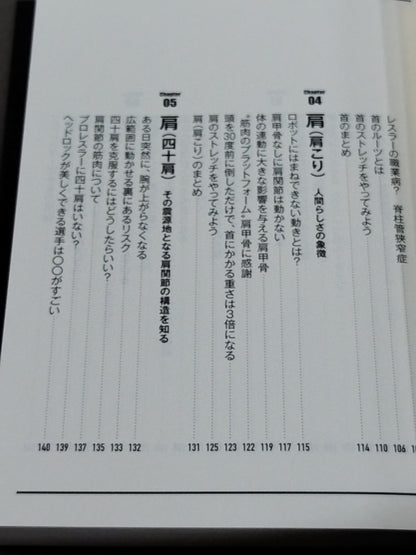 レスラーの職業病? 脊柱管狭窄症
首のルーツとは 106
首のストレッチをやってみよう 110
首のまとめ 114
Chapter 04 肩(肩こり) 人間らしさの象徴
ロボットにはまねできない動きとは? 115
肩甲骨なしに肩関節は動かない 117
体の連動に大きな影響を与える肩甲骨 119
“筋肉のプラットフォーム”肩甲骨に感謝 122
頭を30度前に倒しただけで、首にかかる重さは3倍になる 123
肩のストレッチをやってみよう 125
肩(肩こり)のまとめ 131
Chapter 05 肩(四十肩) その震源地となる肩関節の構造を知る
ある日突然に、腕が上がらなくなる 132
広範囲に動かせる裏にあるリスク 133
四十肩を克服するにはどうしたらいい? 135
肩関節の筋肉について 137
プロレスラーに四十肩はいない? 139
ヘッドロックが美しくできる選手は〇〇がすごい 140